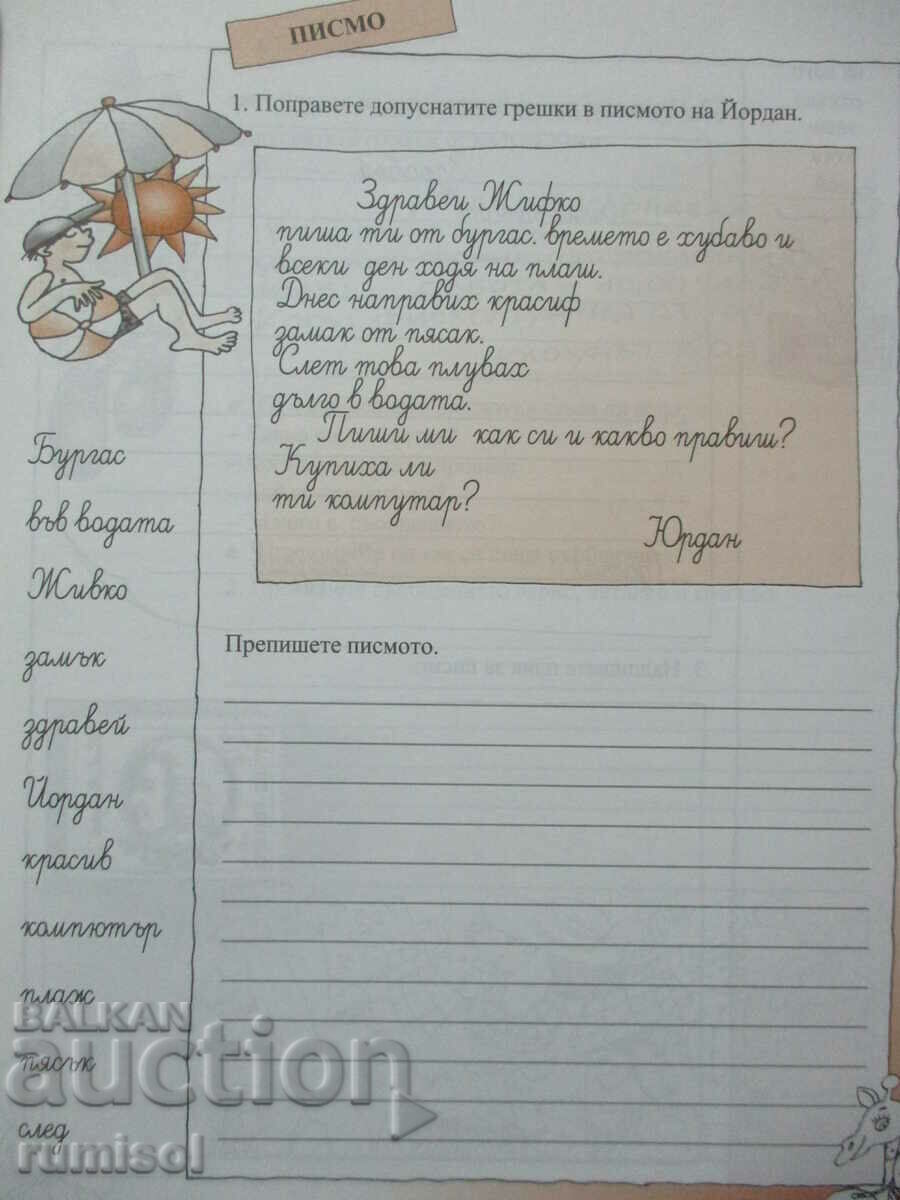 ПИСМО
1. Поправете допуснатите грешки в писмото на Йордан.
Здравеи Жифко
пиша ти от бургас. времето е хубаво и
всеки ден ходя на плаш.
Днес направих красиф
замак от пясак.
Слет това плувах
дълго в водата.
Пиши ми как си и какво правиш?
Купиха ли
ти компутар?
Юрдан
Бургас
във водата
Живко
замък
здравей
Йордан
красив
компютър
плаж
пясък
след
Препишете писмото.
BALKAN
auction
rumisol